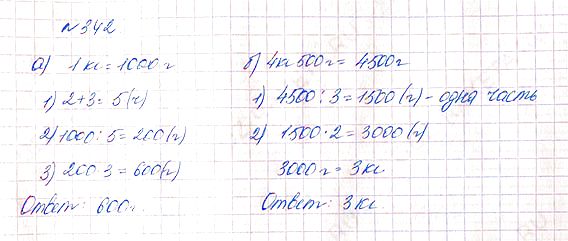 №342
а) 1 кг = 1000 г
1) 2+3 = 5 (ч)
2) 1000 : 5 = 200 (г)
3) 200 · 3 = 600 (г)
Ответ: 600 г.
б) 4кг 500г = 4500г
1) 4500 : 3 = 1500 (г) - одна часть
2) 1500 · 2 = 3000 (г)
3000 г = 3 кг
Ответ: 3 кг